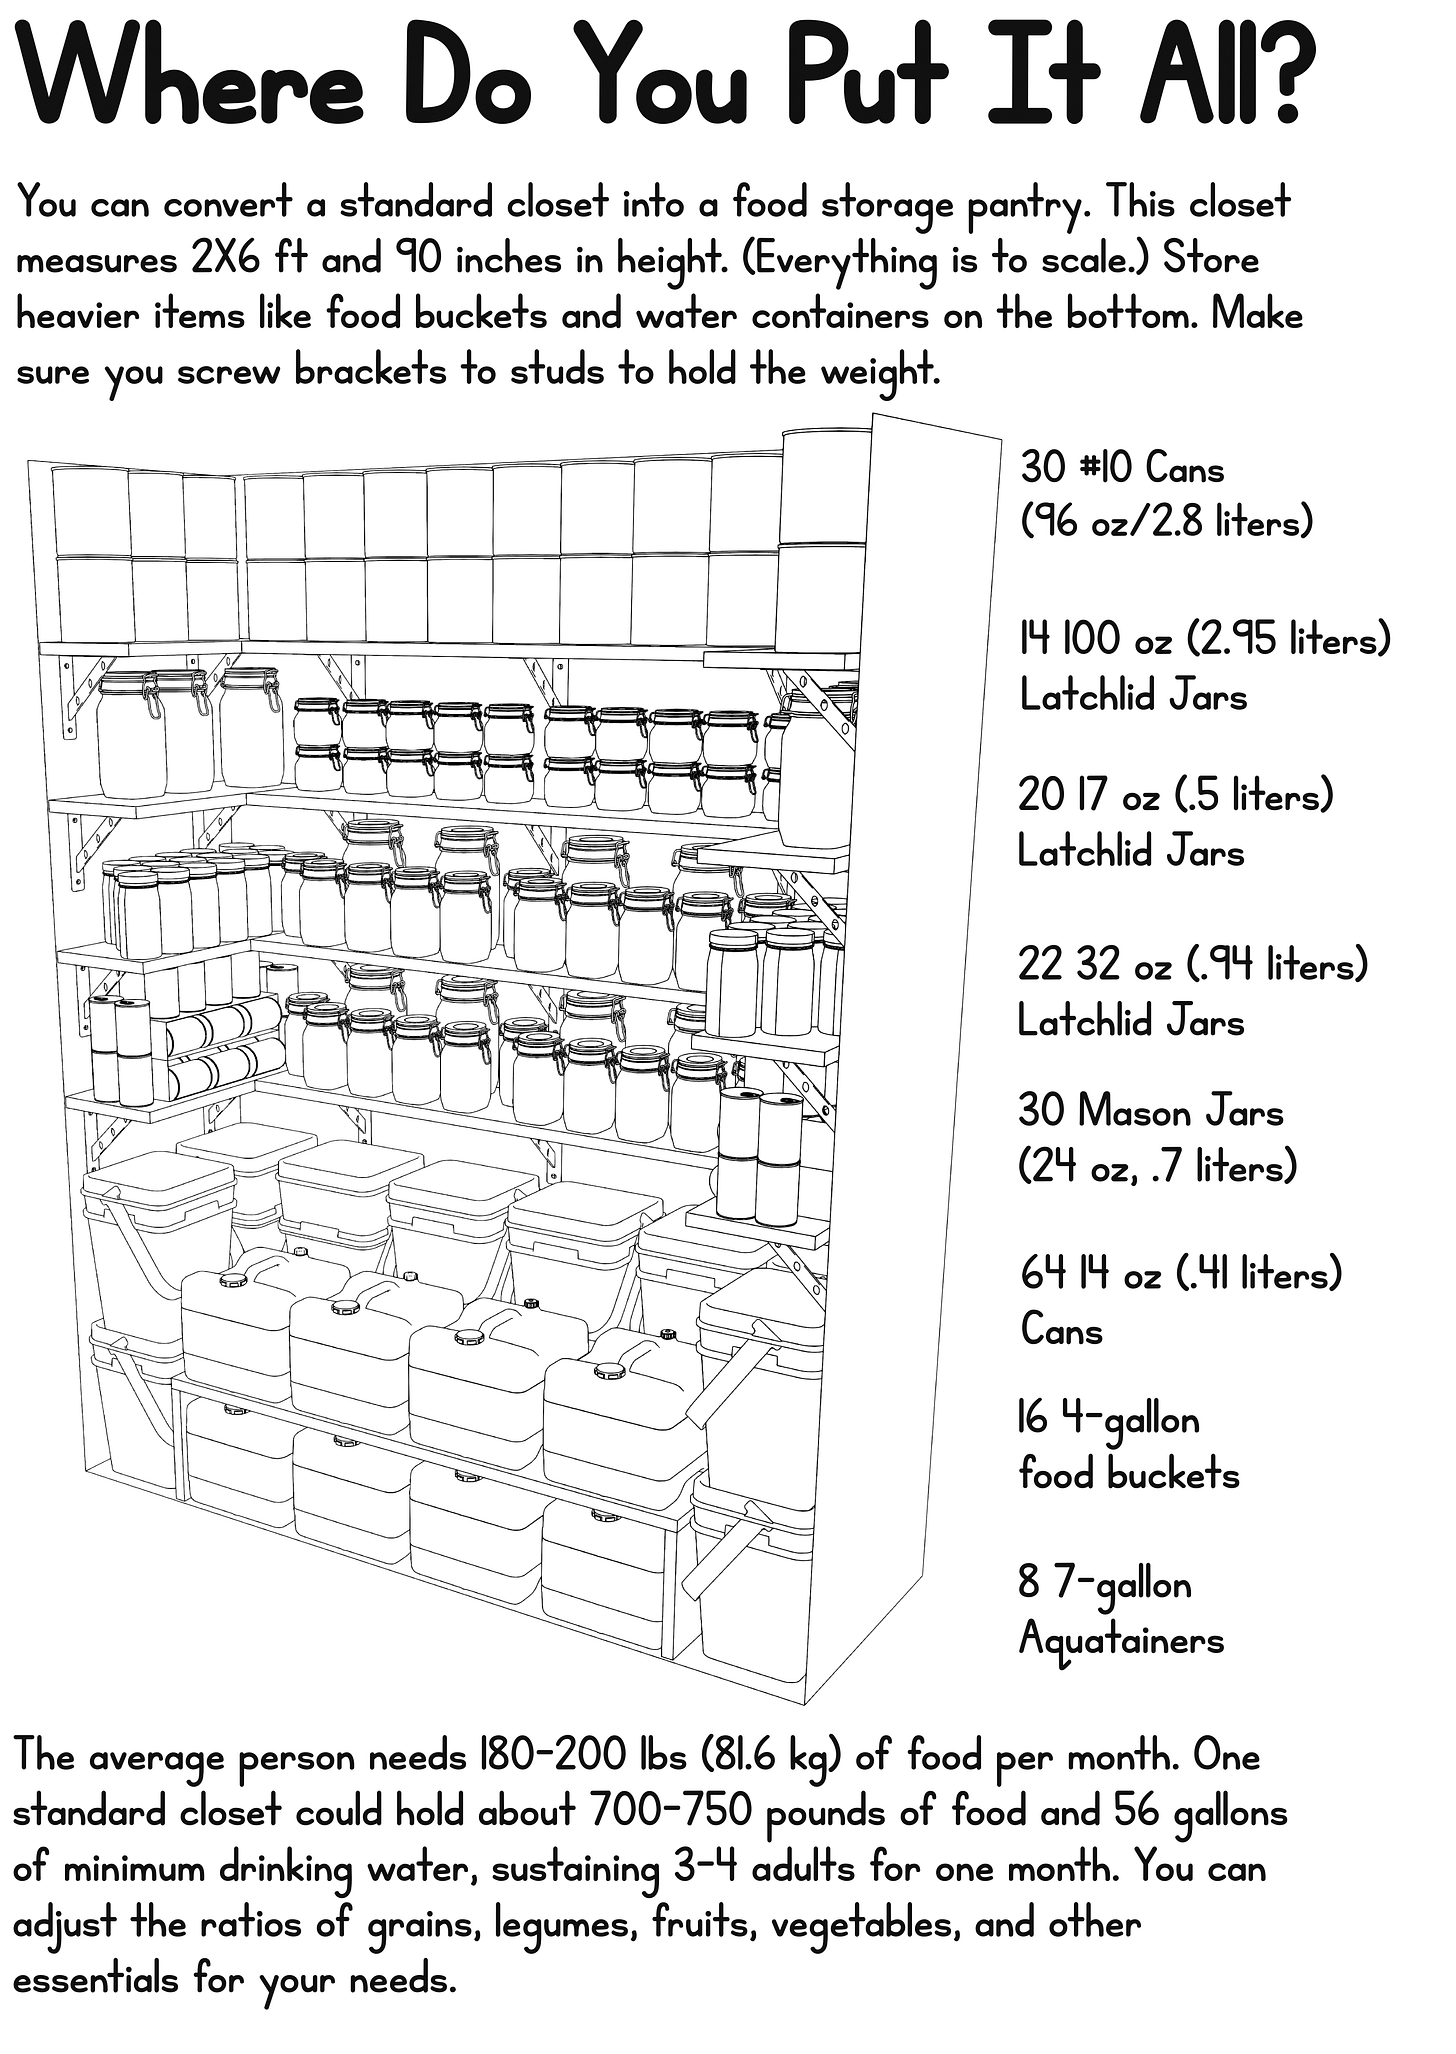 Where Do You Put It All?
You can convert a standard closet into a food storage pantry. This closet
measures 2X6 ft and 90 inches in height. (Everything is to scale.) Store
heavier items like food buckets and water containers on the bottom. Make
sure you screw brackets to studs to hold the weight.
30 #10 Cans
(96 oz/2.8 liters)
14 100 oz (2.95 liters)
Latchlid Jars
20 17 oz (.5 liters)
Latchlid Jars
22 32 oz (.94 liters)
Latchlid Jars
30 Mason Jars
(24 oz, .7 liters)
64 14 oz (.41 liters)
Cans
16 4-gallon
food buckets
8 7-gallon
Aquatainers
The average person needs 180-200 lbs (81.6 kg) of food per month. One
standard closet could hold about 700-750 pounds of food and 56 gallons
of minimum drinking water, sustaining 3-4 adults for one month. You can
adjust the ratios of grains, legumes, fruits, vegetables, and other
essentials for your needs.